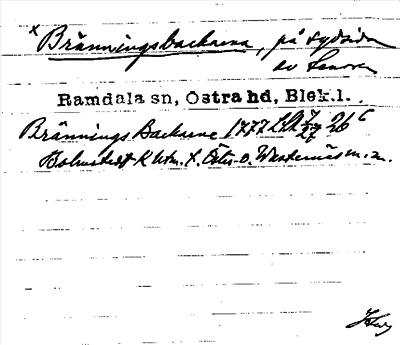 x Bränningsbackarna, på sydsidan
av
Ramdala sn, Östra hd, Blek.l.
Brännings Backarne 1777 26 c
Holmstedt K utm. f. Öster- o. Westernäs m. m.